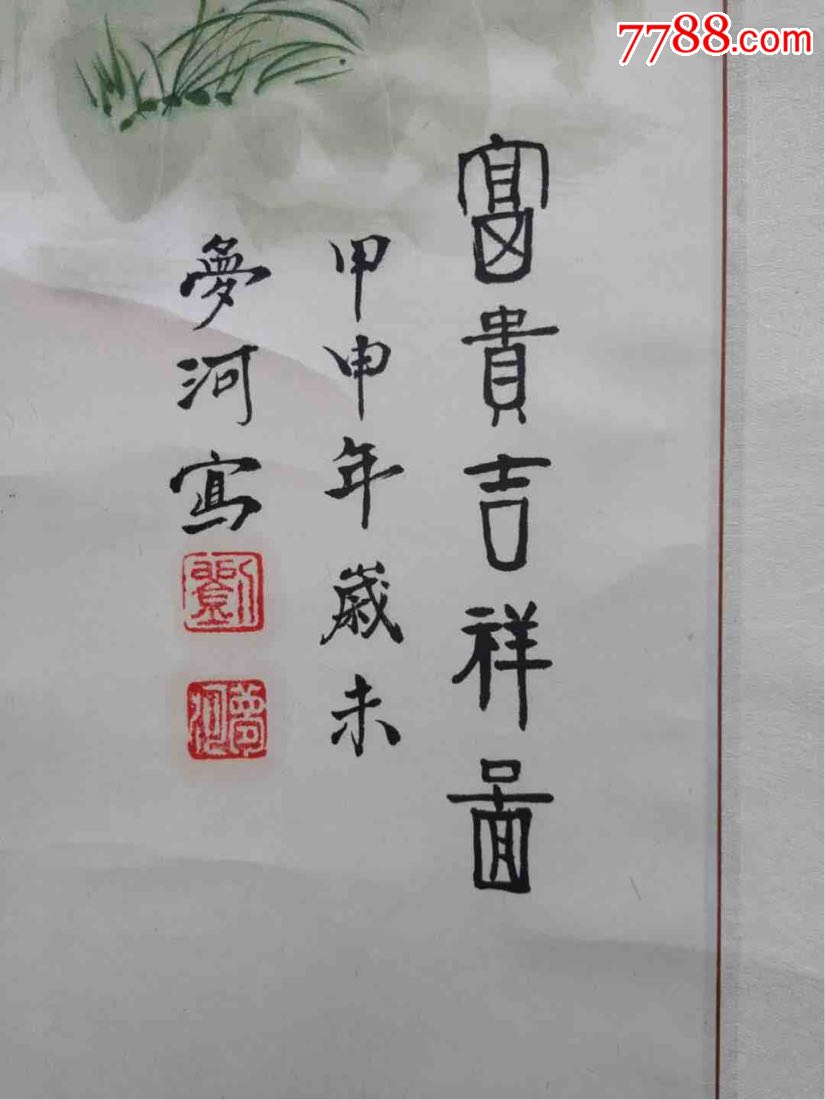 7788.com
富貴吉祥啚
甲申年歲末
夢河寫
劉
夢河